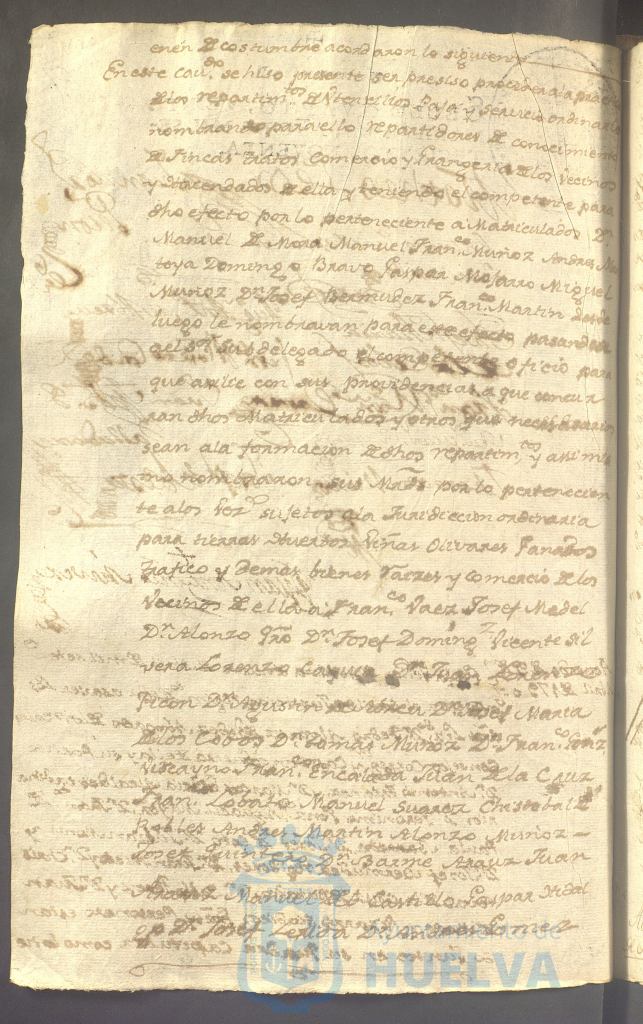 enen de costumbre acordaron lo siguiente
En este cav.do se hiso presente ser presiso proceder a la
de los repartim.tos de Utencillos Paja y servicio ordinario
nombrando para ello repartidores de conocimiento
de Fincas tratos Comercio y Grangeria de los Vecinos
y Hacendados de ella y teniendo el competente para
dho efecto por lo perteneciente a Matriculados Dn
Manuel de Mora Manuel Fran.co Muñoz Andres Mon
toya Domingo Bravo Gaspar Mojarro Miguel
Muñoz Dn Josef Bermudez Fran.co Martin desde
luego le nombravan para este efecto pasandose
al Sr Subdelegado el competente oficio para
que ausilie con sus providencias a que concur
ran dhos Matriculados y otros que necesarios
sean a la formacion de dhos repartim.tos y asi mis
mo nombraron sus Mrds por lo pertenecien
te a los Vez.s sujetos a la Juridiccion ordinaria
para tierras Huertos Viñas Olivares Ganados
trafico y demas bienes raizes y comercio de los
Vecinos de ella a Fran.co Vaez Josef Medel
Dn Alonzo Dn Josef Doming.z Vicente Sil
vera Lorenzo Dn Juan
Picon Dn Agustin de Dn Josef Maria
de los Cobos Dn Tomas Muñoz Dn Fran.co Gonz.z
Viscayno Fran.co Encalada Juan de la Cruz
Fran.co Lobato Manuel Suarez Christobal de
Robles Andres Martin Alonzo Muñoz
Josef Quintero Dn Barme Arauz Juan
Alvarez Manuel del Castillo Gaspar Hidal
go Dn Josef Dn Andres Gomez
Ayuntamiento de
HUELVA